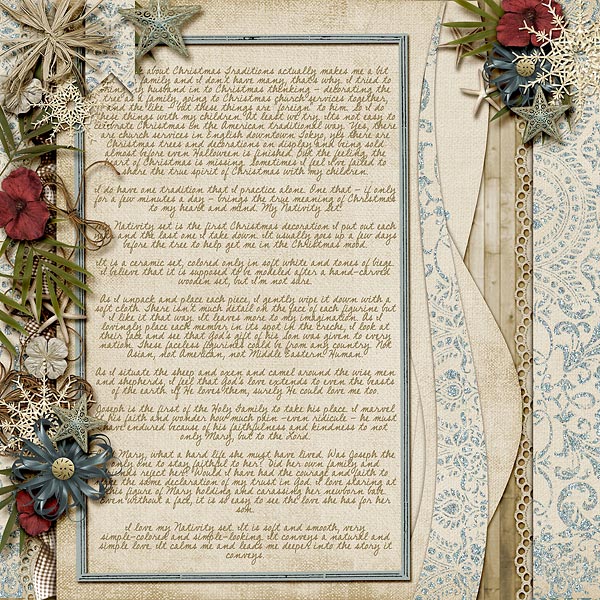 about Christmas Traditions actually makes me a bit
family and I don't have many, that's why. I tried to
my husband in to Christmas thinking - decorating the
tree as a family, going to Christmas church services together,
and the like - but these things are foreign to him. So I do
these things with my children. At least we try. It's not easy to
celebrate Christmas in the American traditional way. Yes, there
are church services in English downtown Tokyo, yes there are
Christmas trees and decorations on display and being sold
almost before even Halloween is finished, but the feeling, the
heart of Christmas is missing. Sometimes I feel I've failed to
share the true spirit of Christmas with my children.
I do have one tradition that I practice alone. One that - if only
for a few minutes a day - brings the true meaning of Christmas
to my heart and mind. My Nativity Set.
My Nativity set is the first Christmas decoration I put out each
and the last one I take down. It usually goes up a few days
before the tree to help get me in the Christmas mood.
It is a ceramic set, colored only in soft white and tones of beige.
I believe that it is supposed to be modeled after a hand-carved
wooden set, but I'm not sure.
As I unpack and place each piece, I gently wipe it down with a
soft cloth. There isn't much detail on the face of each figurine but
I like it that way. It leaves more to my imagination. As I
lovingly place each member in its spot in the creche, I look at
their face and see that God's gift of his Son was given to every
nation. These faceless figurines could be from any country. Not
Asian, not American, not Middle Eastern. Human.
As I situate the sheep and oxen and camel around the wise men
and shepherds, I feel that God's love extends to even the beasts
of the earth. If He loves them, surely He could love me too.
Joseph is the first of the Holy Family to take his place. I marvel
at his faith and wonder how much pain - even ridicule - he must
have endured because of his faithfulness and kindness to not
only Mary, but to the Lord.
Mary, what a hard life she must have lived. Was Joseph the
only one to stay faithful to her? Did her own family and
friends reject her? Would I have had the courage and faith to
make the same declaration of my trust in God. I love staring at
this figure of Mary holding and carassing her newborn babe.
Even without a face, it is so easy to see the love she has for her
son.
I love my Nativity set. It is soft and smooth, very
simple-colored and simple-looking. It conveys a natural and
simple love. It calms me and leads me deeper into the story it
conveys.